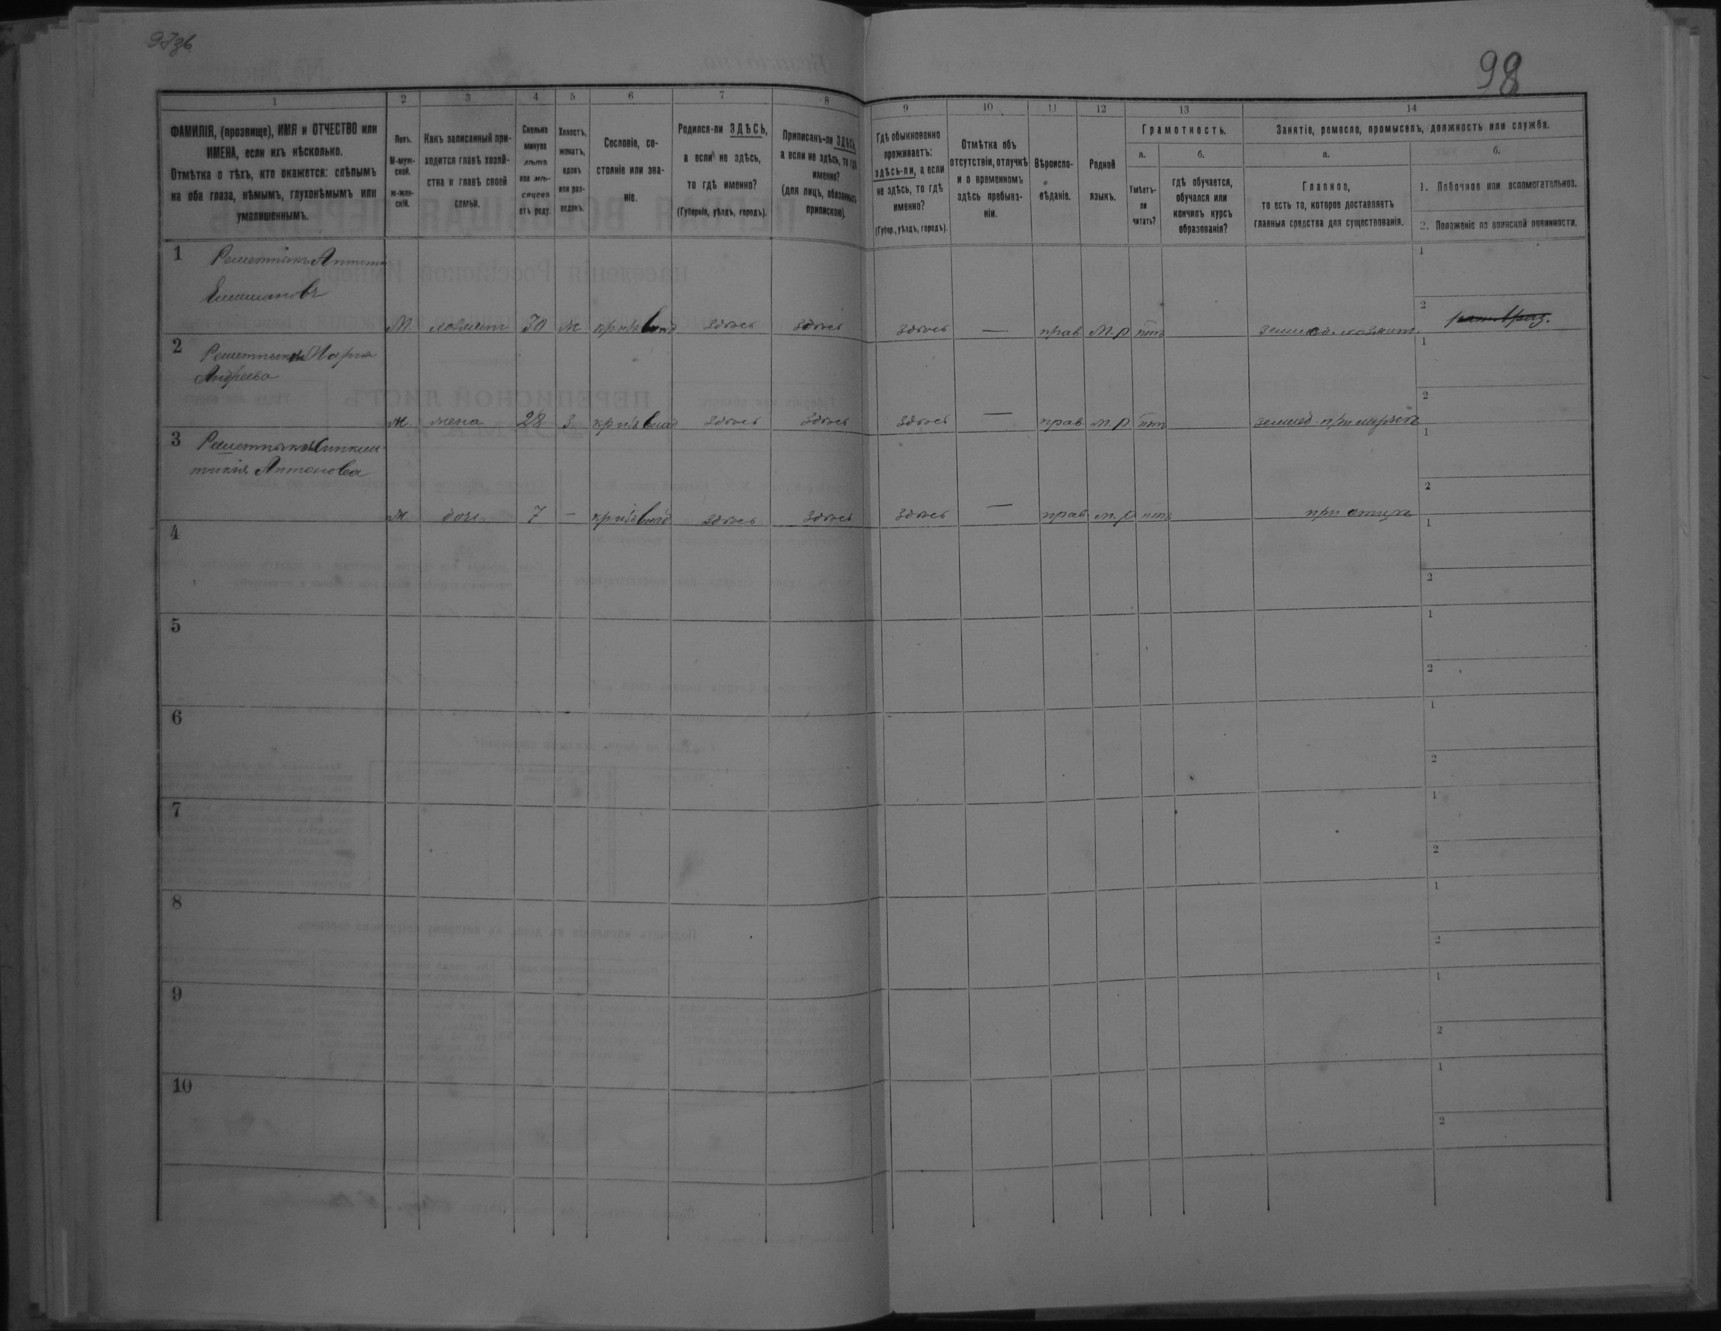 97зв
98
1 2 3 4 5 6 7 8 9 10 11 12 13 14
ФАМИЛІЯ, (прозвище), ИМЯ и ОТЧЕСТВО или
ИМЕНА, если ихъ нѣсколько.
Отмѣтка о тѣхъ, кто окажется: слѣпымъ
на оба глаза, нѣмымъ, глухонѣмымъ или
умалишеннымъ.
Полъ.
М-муж-
ской.
ж-жен-
скій.
Какъ записанный при-
ходится главѣ хозяй-
ства и главѣ своей
семьи.
Сколько
минуло
лѣтъ
или мѣ-
сяцевъ
отъ роду.
Холостъ,
женатъ,
вдовъ
или раз-
веденъ.
Сословіе, со-
стояніе или зва-
ніе.
Родился-ли ЗДѢСЬ,
а если не здѣсь,
то гдѣ именно?
(Губернія, уѣздъ, городъ).
Приписанъ-ли ЗДѢСЬ,
а если не здѣсь, то гдѣ
именно?
(для лицъ, обязанныхъ
припискою).
Гдѣ обыкновенно
проживаетъ:
здѣсь-ли, а если
не здѣсь, то гдѣ
именно?
(Губер., уѣздъ, городъ).
Отмѣтка объ
отсутствіи, отлучкѣ
и о временномъ
здѣсь пребыва-
ніи.
Вѣроиспо-
вѣданіе.
Родной
языкъ.
Грамотность.
а.
Умѣетъ-
ли
читать?
б.
гдѣ обучается,
обучался или
кончилъ курсъ
образованія?
Занятіе, ремесло, промыселъ, должность или служба.
а.
Главное,
то есть то, которое доставляетъ
главныя средства для существованія.
б.
1. Побочное или вспомогательное.
2. Положеніе по воинской повинности.
1 Решетнякъ Антонъ
М хозяинъ 30 ж здѣсь здѣсь здѣсь — прав М.р нѣтъ
2 Марья
Андреева
ж. жена 28 з. здѣсь здѣсь здѣсь — прав м.р нѣтъ
3
Антонова
ж. дочь 7 – здѣсь здѣсь здѣсь — прав м.р нѣтъ при отцѣ
4
5
6
7
8
9
10